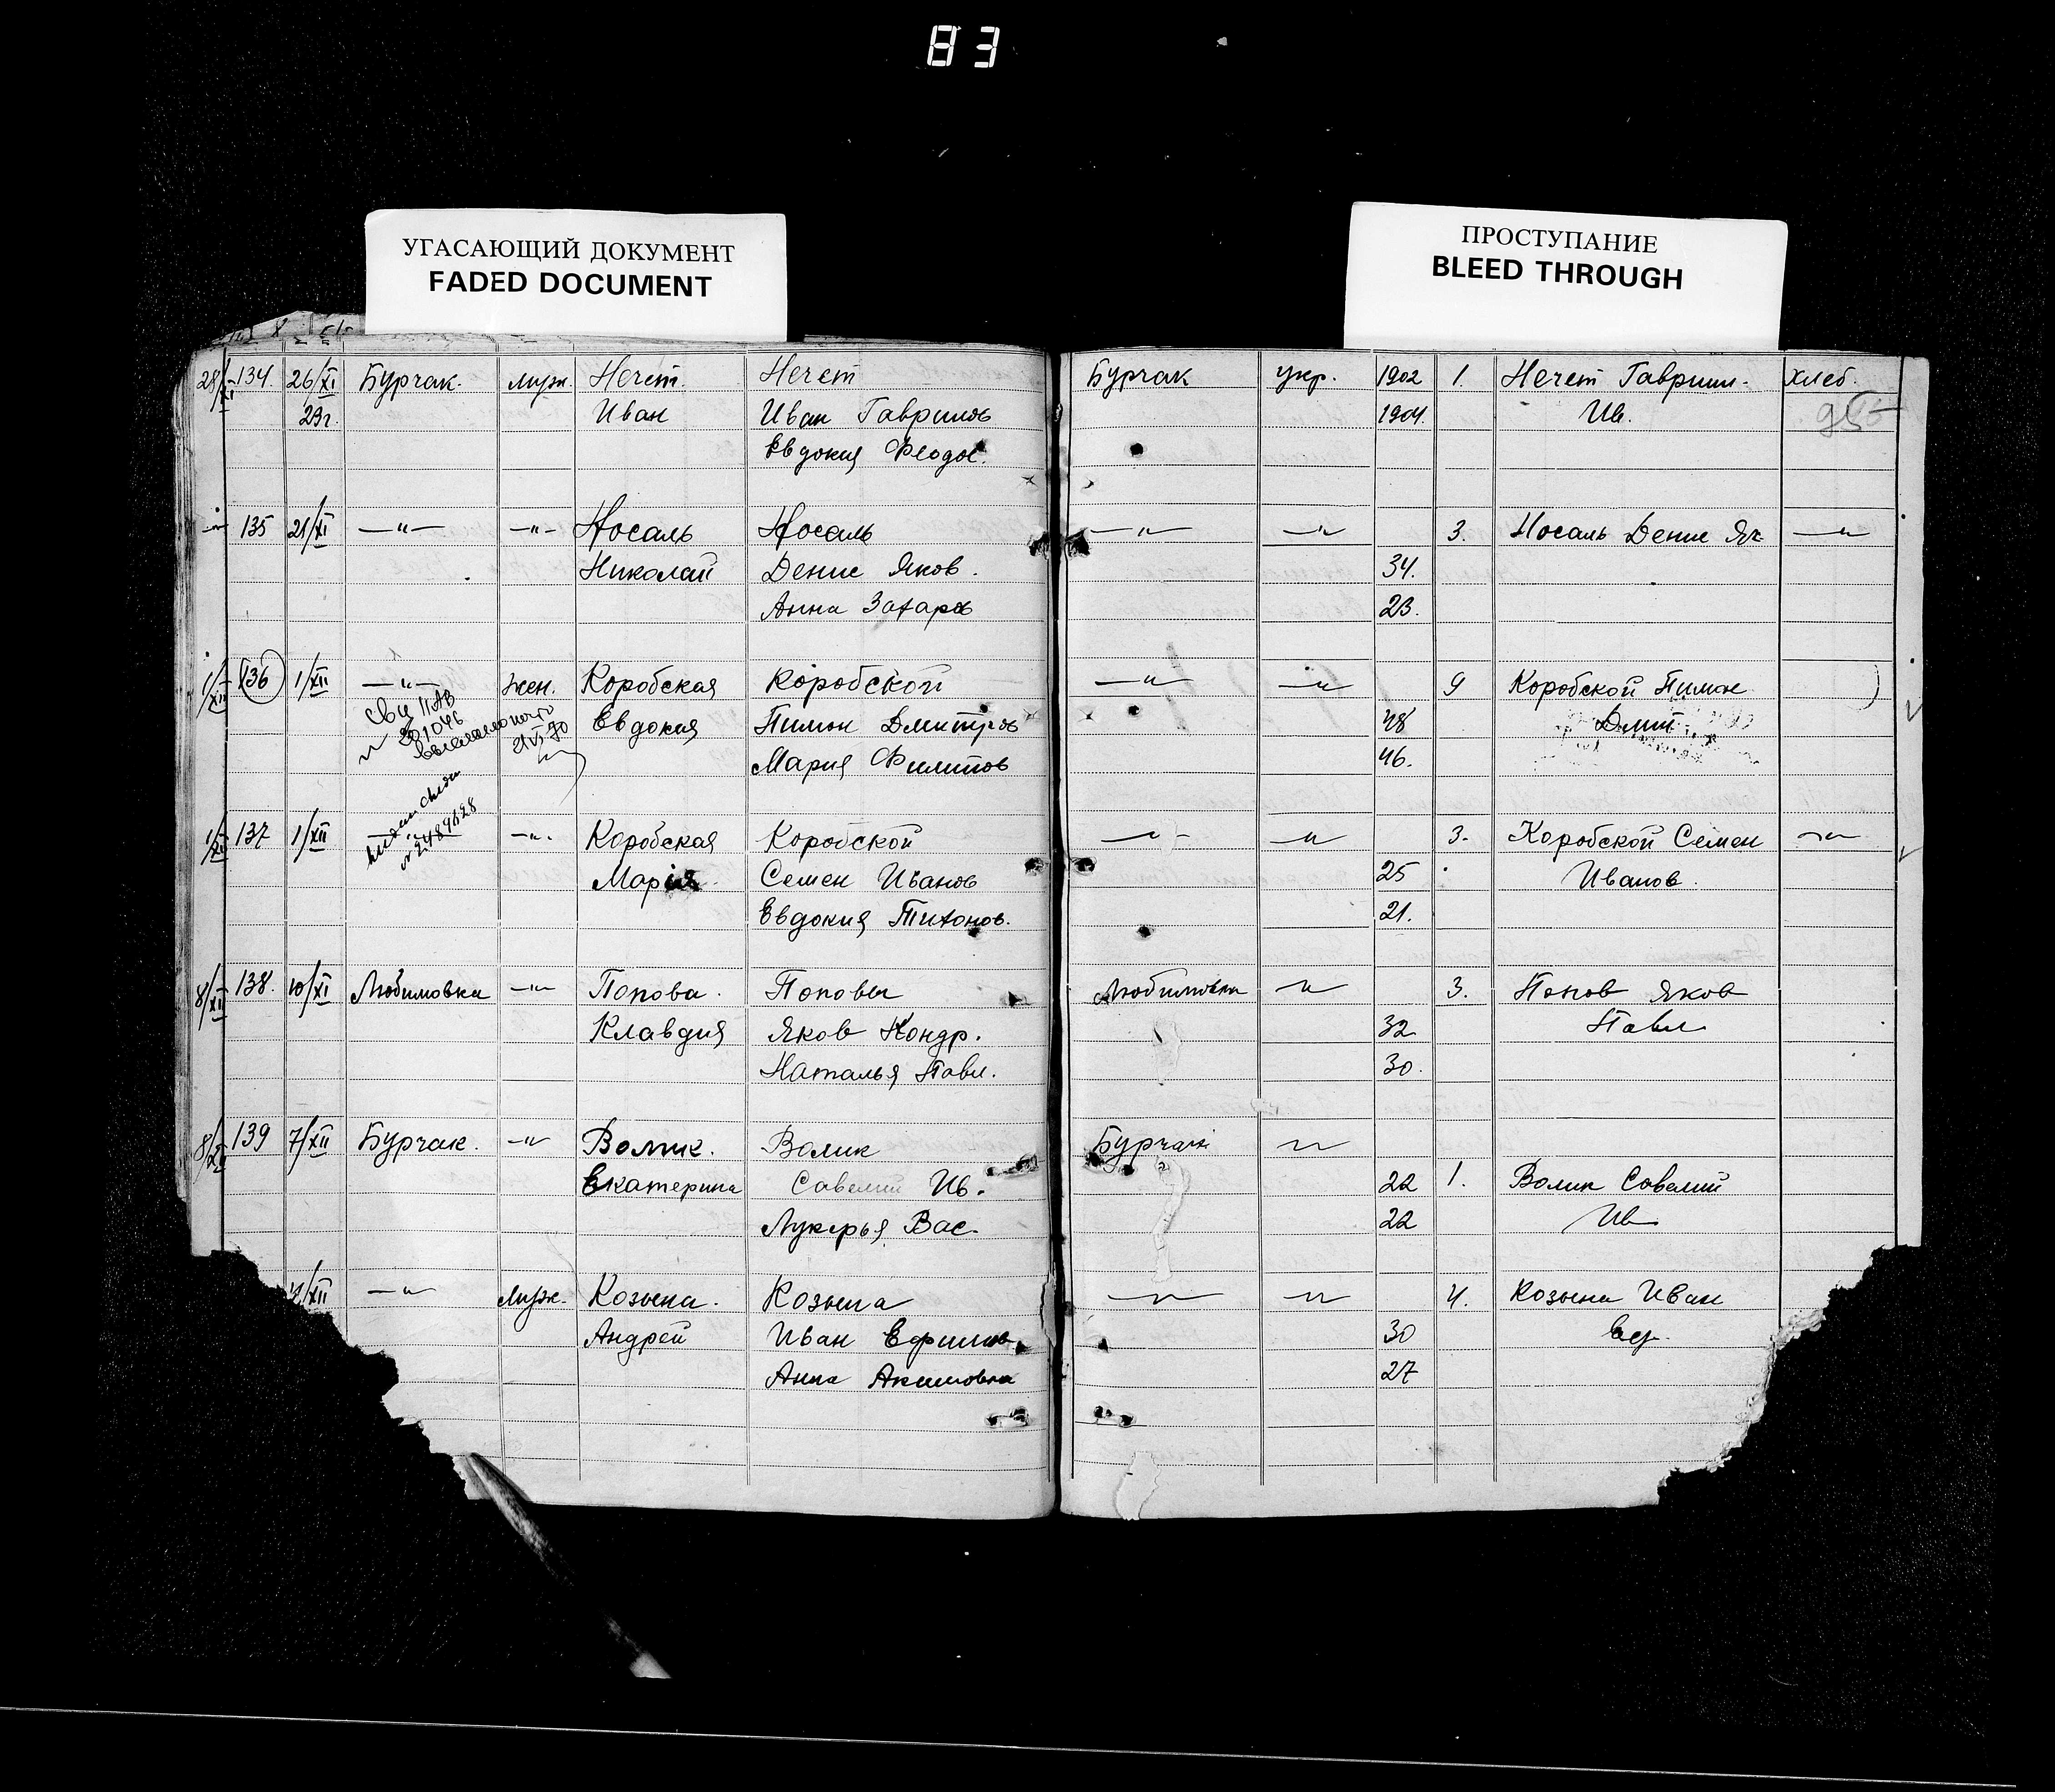 83
УГАСАЮЩИЙ ДОКУМЕНТ
FADED DOCUMENT
ПРОСТУПАНИЕ
BLEED THROUGH
28/XI 134. 26/XI Бурчак. муж. Нечет Нечет Бурчак укр. 1902 1. Нечет Гавриил. хлеб.
29г. Иван Иван Гаврилов 1904. Ив. 95
Евдокия Феодос.
-"- 135 21/XI -"- -"- Носаль Носаль -"- -"- 3. Носаль Денис Як -"-
Николай Денис Яков. 34.
Анна Захаров 23.
1/XII 136 1/XII -"- жен. Коробская Коробской -"- -"- 9 Коробской Пимон
Евдокия Пимон Дмитров 48 Дмит
Мария Филипов 46.
1/XII 137 1/XII -"- -"- Коробская Коробской -"- -"- 3. Коробской Семен -"-
Мария Семен Иванов 25 Иванов.
Евдокия Тихонов. 21.
8/XII 138. 10/XI Любимовка -"- Попова. Поповы Любимовка -"- 3. Попов Яков
Клавдия Яков Кондр. 32 Павл
Наталья Павл. 30.
8/XII 139 7/XII Бурчак. -"- Волик. Волик Бурчак -"-
Екатерина Савелий Ив. 22 1. Волик Савелий
Лукерья Вас. 22 Ив
7/XII -"- муж. Козына. Козына -"- -"- 4. Козына Иван
Андрей Иван Ефимов 30
Анна Акимовна 27